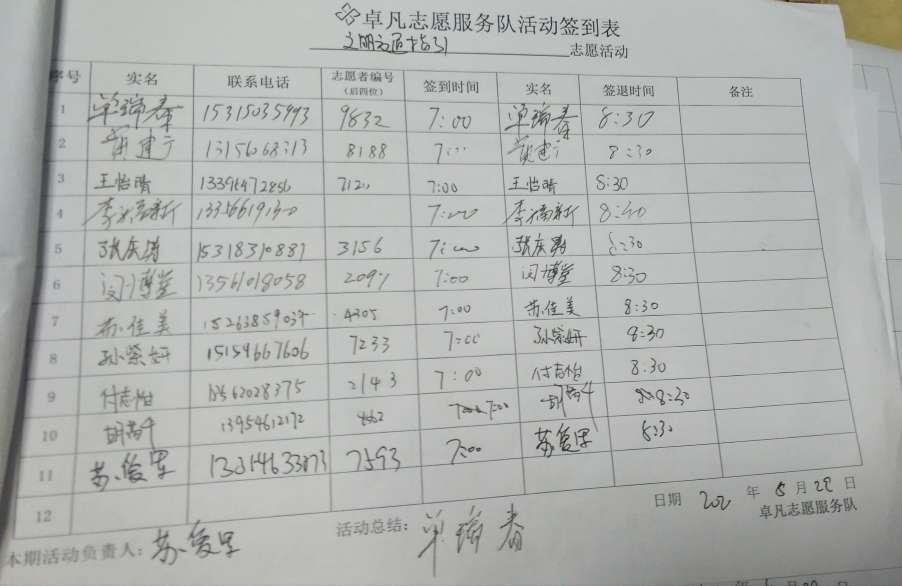 卓凡志愿服务队活动签到表
文明交通指引 志愿活动
序号 实名 联系电话 志愿者编号（后四位） 签到时间 实名 签退时间 备注
1 单瑞春 15315035993 9832 7:00 单瑞春 8:30
2 建 13156068313 8188 7:00 建 8:30
3 王怡晴 712 7:00 王怡晴 8:30
4 李福新 7:00 李福新 8:40
5 张庆 15318310881 3156 7:00 张庆 8:30
6 闫博堂 13561018058 209 7:00 闫博堂 8:30
7 苏佳美 4305 7:00 苏佳美 8:30
8 孙紫妍 15154667606 7233 7:00 孙紫妍 8:30
9 付志怡 62028375 2143 7:00 付志怡 8:30
10 胡 13954612172 862 7:00 胡 8:30
11 苏俊军 7593 7:00 苏俊军 8:30
12
日期 202 年 8 月 22 日
本期活动负责人：苏俊军 活动总结：单瑞春 卓凡志愿服务队